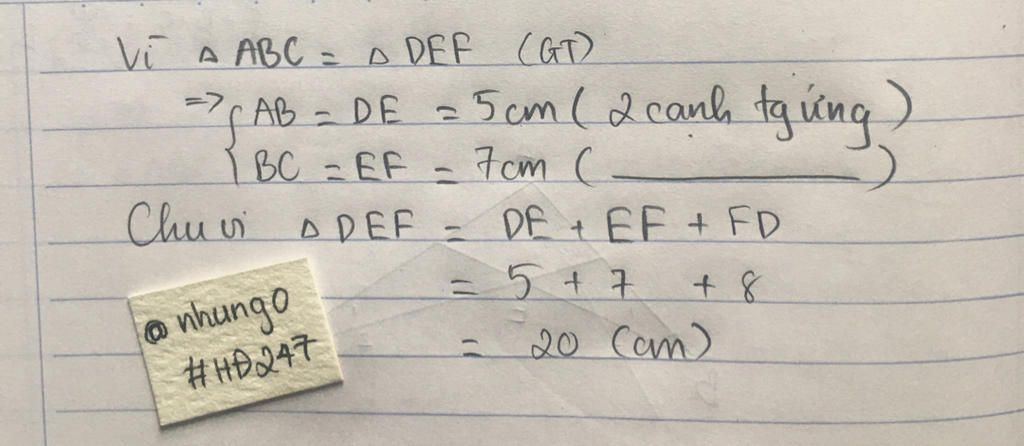 Vì △ ABC = △ DEF (GT)
=> { AB = DE = 5cm ( 2 cạnh tg ứng )
{ BC = EF = 7cm ( ________ )
Chu vi △ DEF = DE + EF + FD
= 5 + 7 + 8
= 20 (cm)
@nhung0
#HĐ247